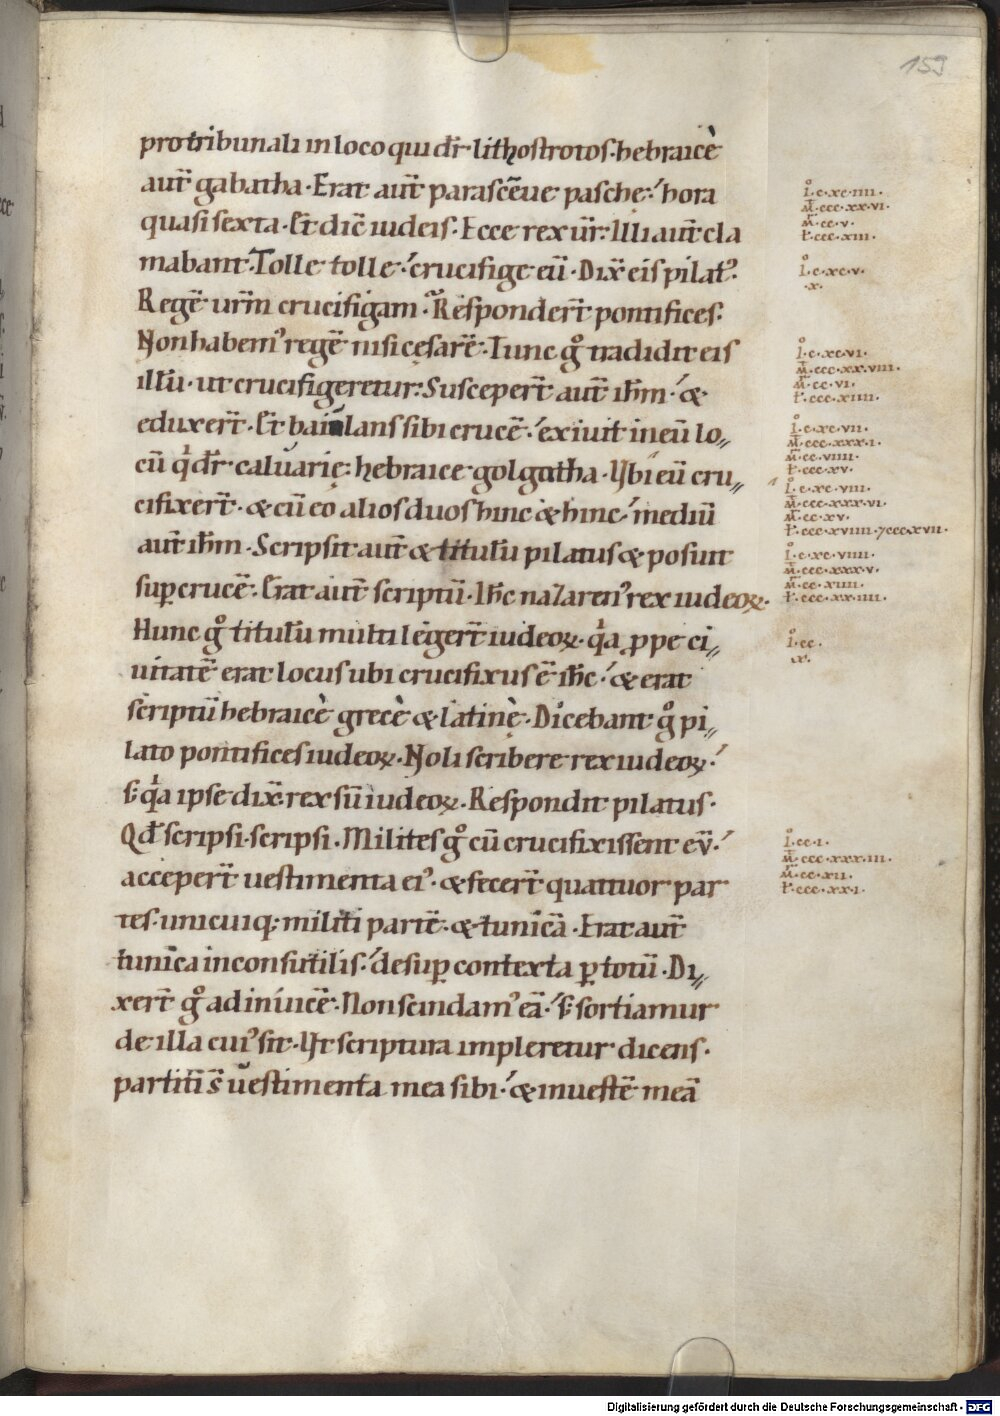 159
pro tribunali in loco qui dr̄· lithostrotos· hebraicè
aut̄ gabatha· Erat aut̄ parascēue paschę· hora
quasi sexta· Et dic̄ iudeis· Ecce rex ur̄· Illi aut̄ cla
mabant· Tolle tolle· crucifige eū· Dix̄ eis pilatꝰ·
Regē urm̄ crucifigam· Responder̄t pontifices·
Non habemꝰ regē nisi cesarē· Tunc gͦ tradidit eis
illū· ut crucifigeretur· Susceper̄t aut̄ ihm̄· &
eduxer̄t· Et baiulans sibi crucē· exiuit in eū lo
cū qͥ dr̄· caluarię· hębraice golgatha· Vbi eū cru
cifixer̄t· & cū eo alios duos hinc & hinc· mediū
aut̄ ihm̄· Scripsit aut̄ & titulū pilatus & posuit
suꝑ crucē· Erat aut̄ scriptū· Ihc̄ nazarenꝰ rex iudeoꝝ·
Hunc gͦ titulū multi leger̄t iudeoꝝ· qͥa ꝓpe ci
uitatē erat locus ubi crucifixus ē ihc̄· & erat
scriptū hebraicè grecè & latinè· Dicebant gͦ pi
lato pontifices iudeoꝝ· Noli scribere rex iudeoꝝ·
s; qͥa ipse dix̄ rex sū iudeoꝝ· Respondit pilatus·
Qd̄ scripsi· scripsi· Milites gͦ cū crucifixissent eū·
acceper̄t uestimenta eiꝰ· & fecer̄t quattuor par
tes· unicuiq; militi partē· & tunicā· Erat aut̄
tunica inconsutilis· desuꝑ contexta ꝑ totū· Di
xer̄t gͦ ad inuicē· Non scindamꝰ eā· s; sortiamur
de illa cuiꝰ sit· Vt scriptura impleretur dicens·
partiti s̄ uestimenta mea sibi· & in uestē meā
I· c· xc· iiii·
M̄· ccc· xx· vi·
M̄· cc· v·
L· ccc· xiii·
I· c· xc· v·
·x·
I· c· xc· vi·
M̄· ccc· xx· viii·
M̄· cc· vi·
L· ccc· xiiii·
I· c· xc· vii·
M̄· ccc· xxx· i·
M̄· cc· viiii·
L· ccc· xv·
I· c· xc· viii·
M̄· ccc· xxx· vi·
M̄· cc· xv·
L· ccc· xviii· 7 ccc· xvii·
I· c· xc· viiii·
M̄· ccc· xxx· v·
M̄· cc· xiiii·
L· ccc· xx· iiii·
I· cc·
·x·
I· cc· i·
M̄· ccc· xxx· iii·
M̄· cc· xii·
L· ccc· xx· i·
Digitalisierung gefördert durch die Deutsche Forschungsgemeinschaft - DFG